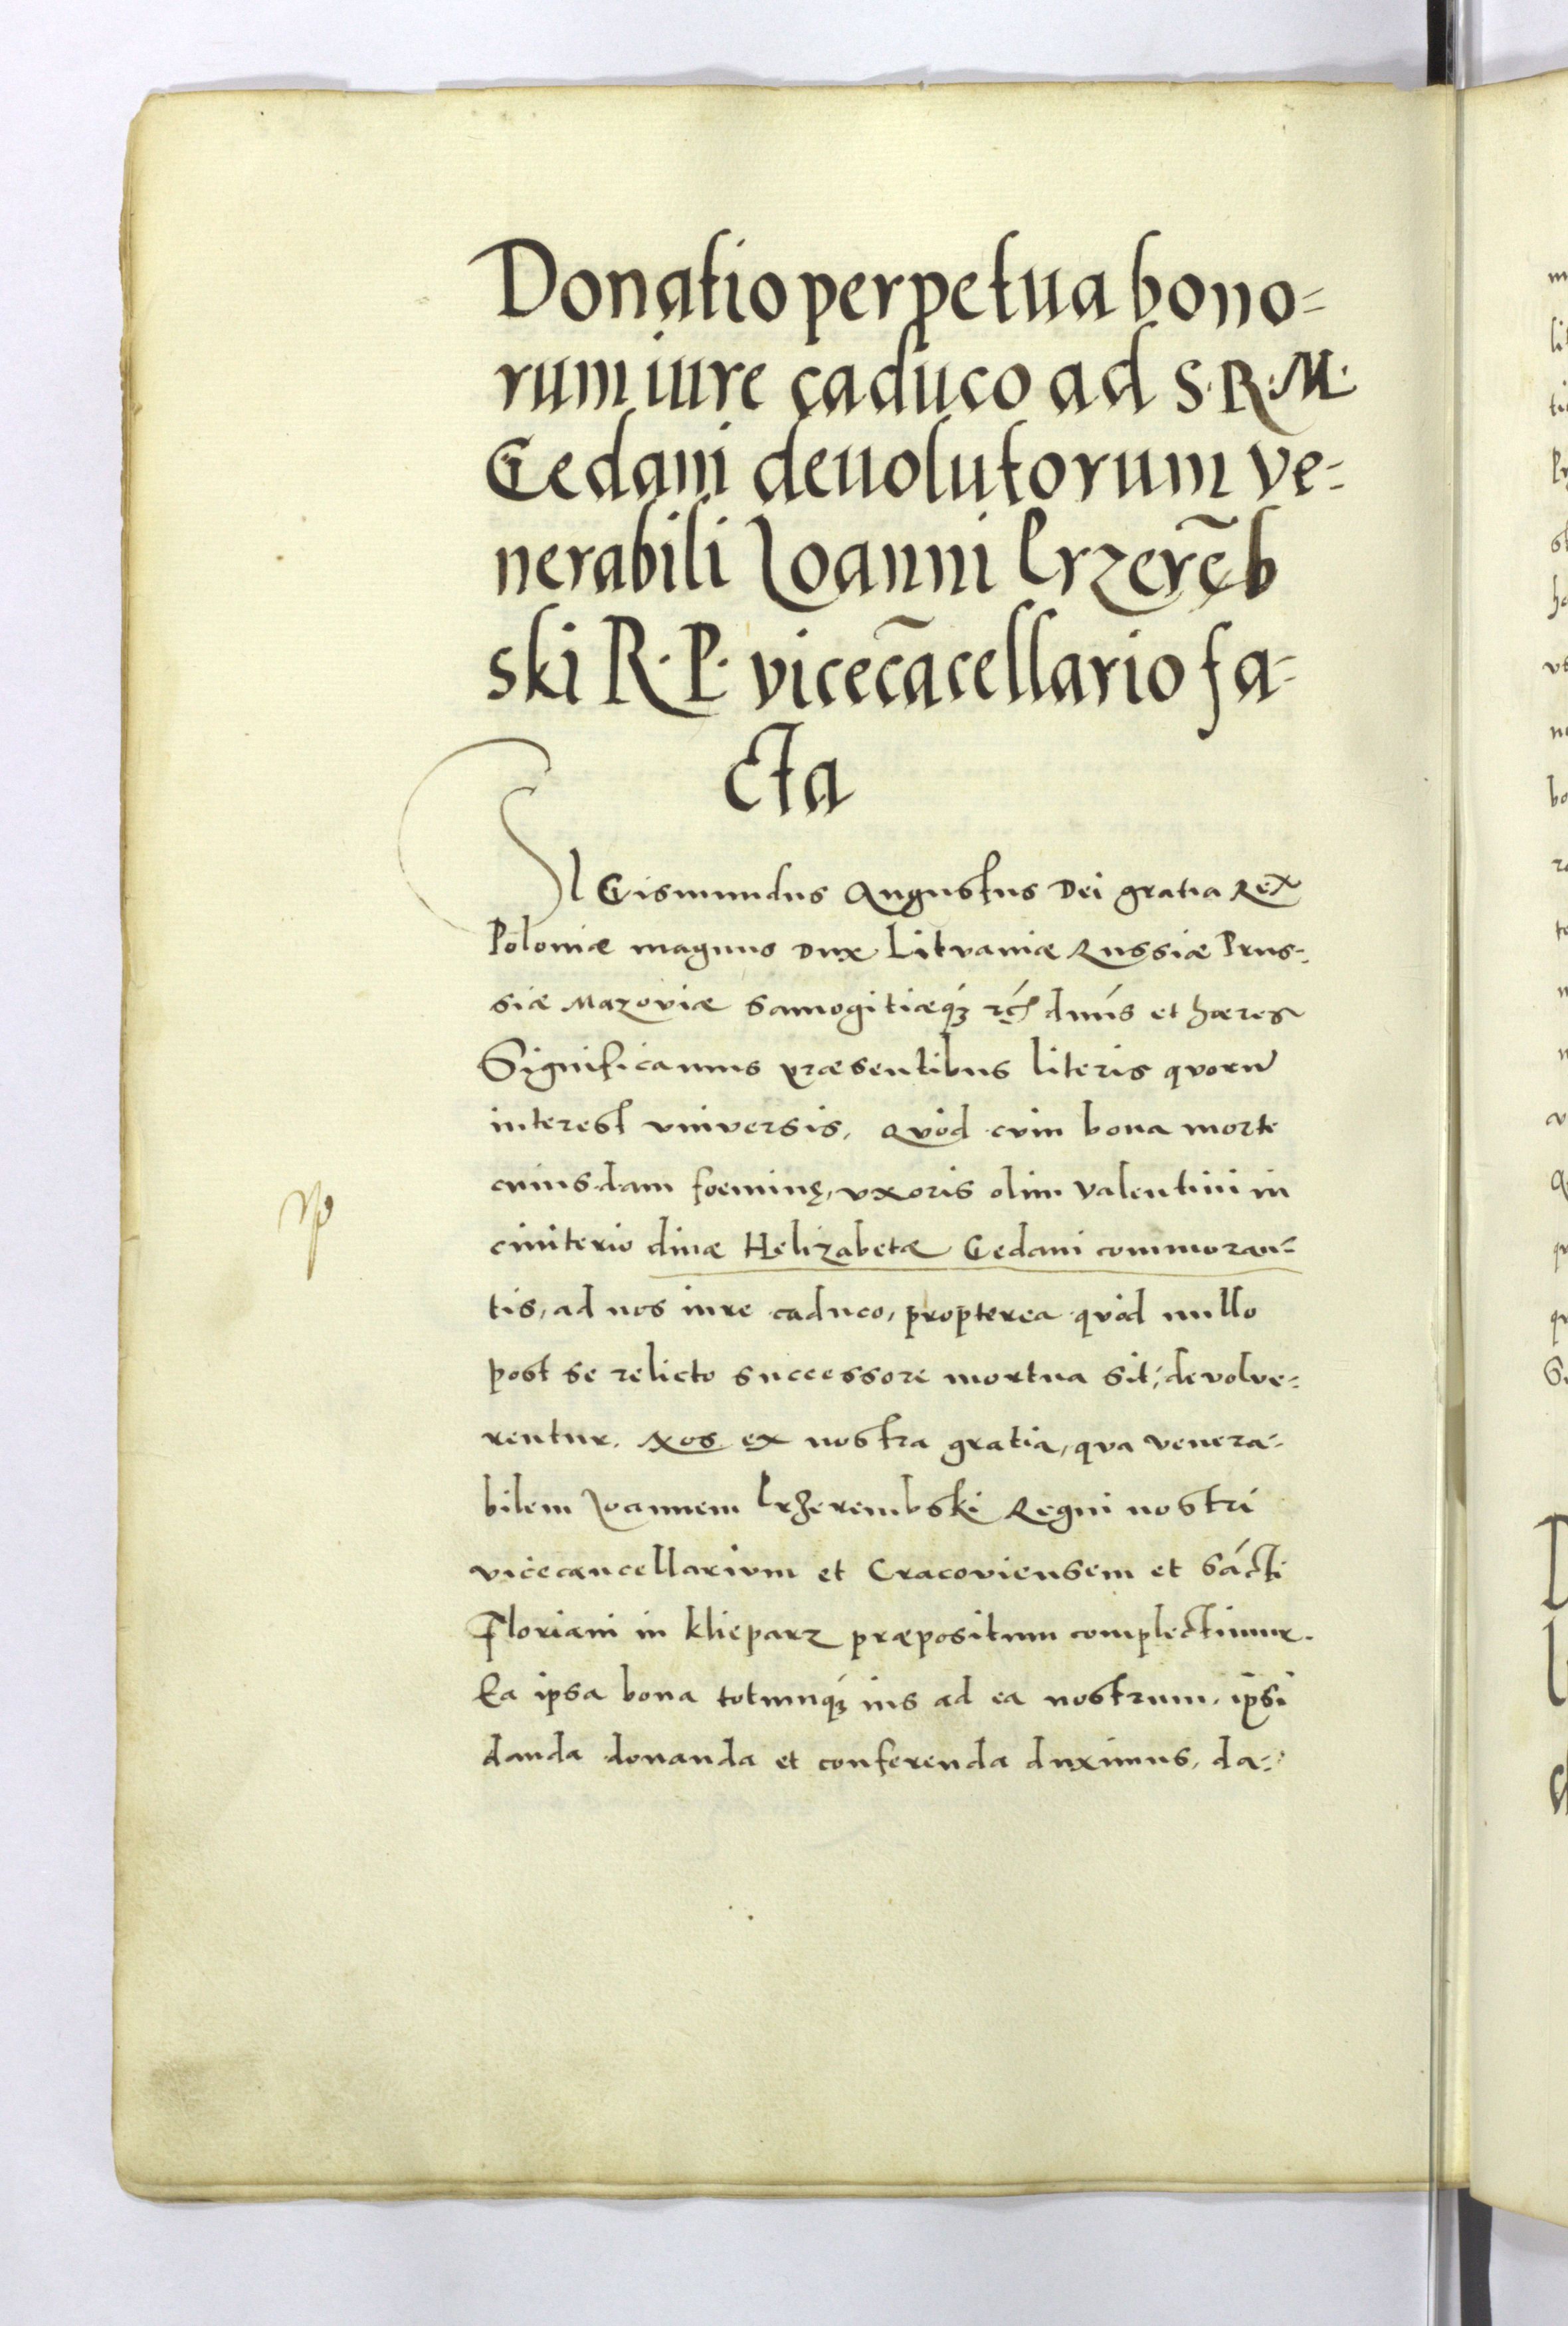 Donatio perpetua bono=
rum iure caduco ad S·R·M·
Gedani deuolutorum ve=
nerabili Ioanni Przerę̃b
ski R·P· vicecãcellario fa=
cta
SIGismundus Augustus Dei gratia Rex
Poloniæ magnus Dux Litvaniæ Russiæ Prus=
siæ Mazoviæ Samogitiæq́ʒ etć dnús et hæres
Significamus præsentibus literis quorū
interest vniversis, Quòd cum bona morte
cuiusdam foeminę, vxoris olim Valentini in
cimiterio diuæ Helizabetæ Gedani commoran=
tis, ad nos iure caduco, propterea quòd nullo
post se relicto successore mortua sit, devolve=
rentur. Nos ex nostra gratia, qua venera=
bilem Ioannem Przerembski Regni nostri
vicecancellarium et Cracoviensem et Sácti
Floriani in Klieparz præpositum complectimur.
Ea ipsa bona totumq́ʒ ius ad ea nostrum, ip̄si
danda donanda et conferenda duximus, da=